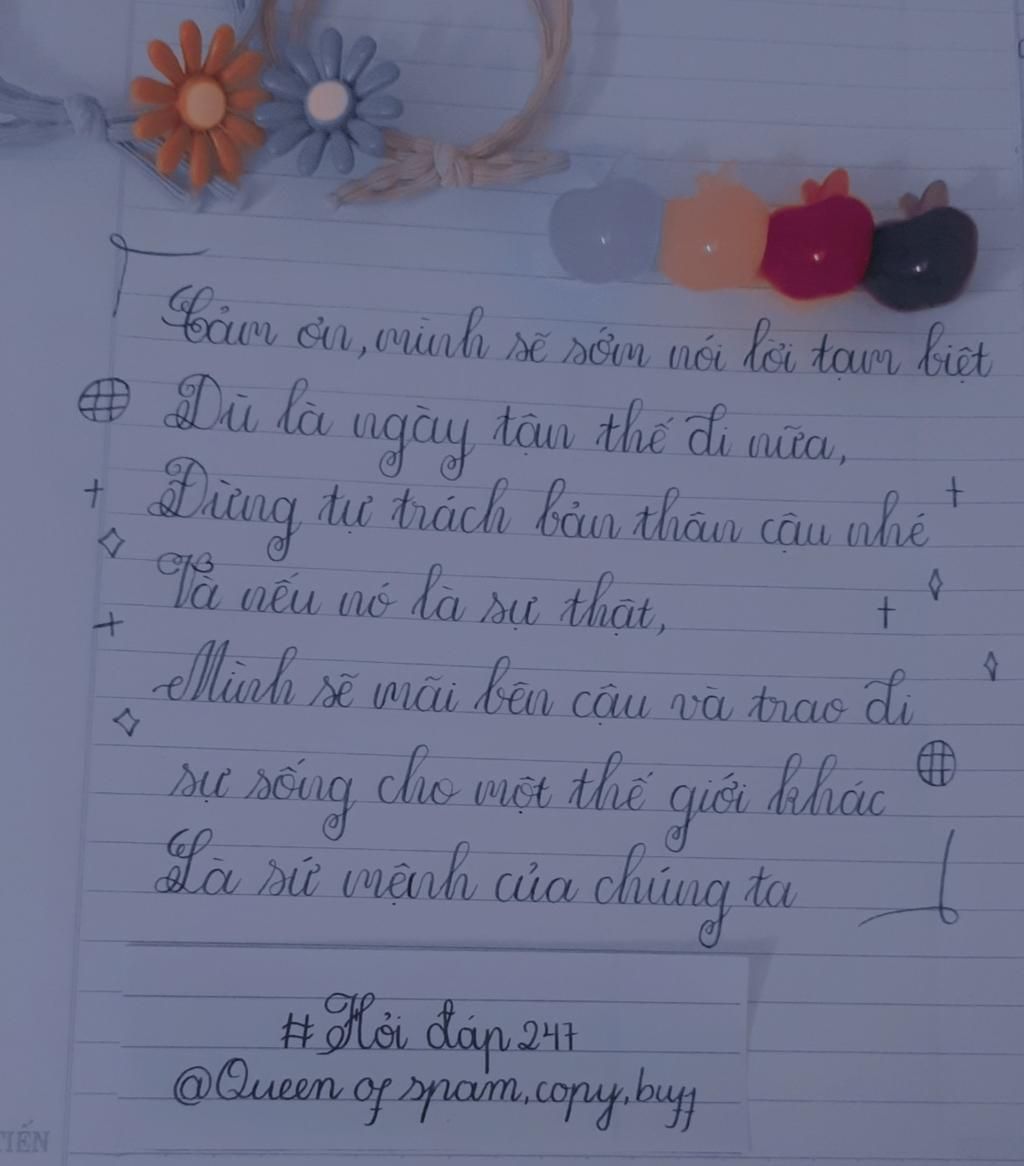 Cảm ơn, mình sẽ sớm nói lời tạm biệt
Dù là ngày tận thế đi nữa,
Đừng tự trách bản thân cậu nhé
Và nếu nó là sự thật,
Mình sẽ mãi bên cậu và trao đi
sự sống cho một thế giới khác
Là sứ mệnh của chúng ta
#Hỏi đáp 247
@Queen of spam, copy, buff
TIẾN